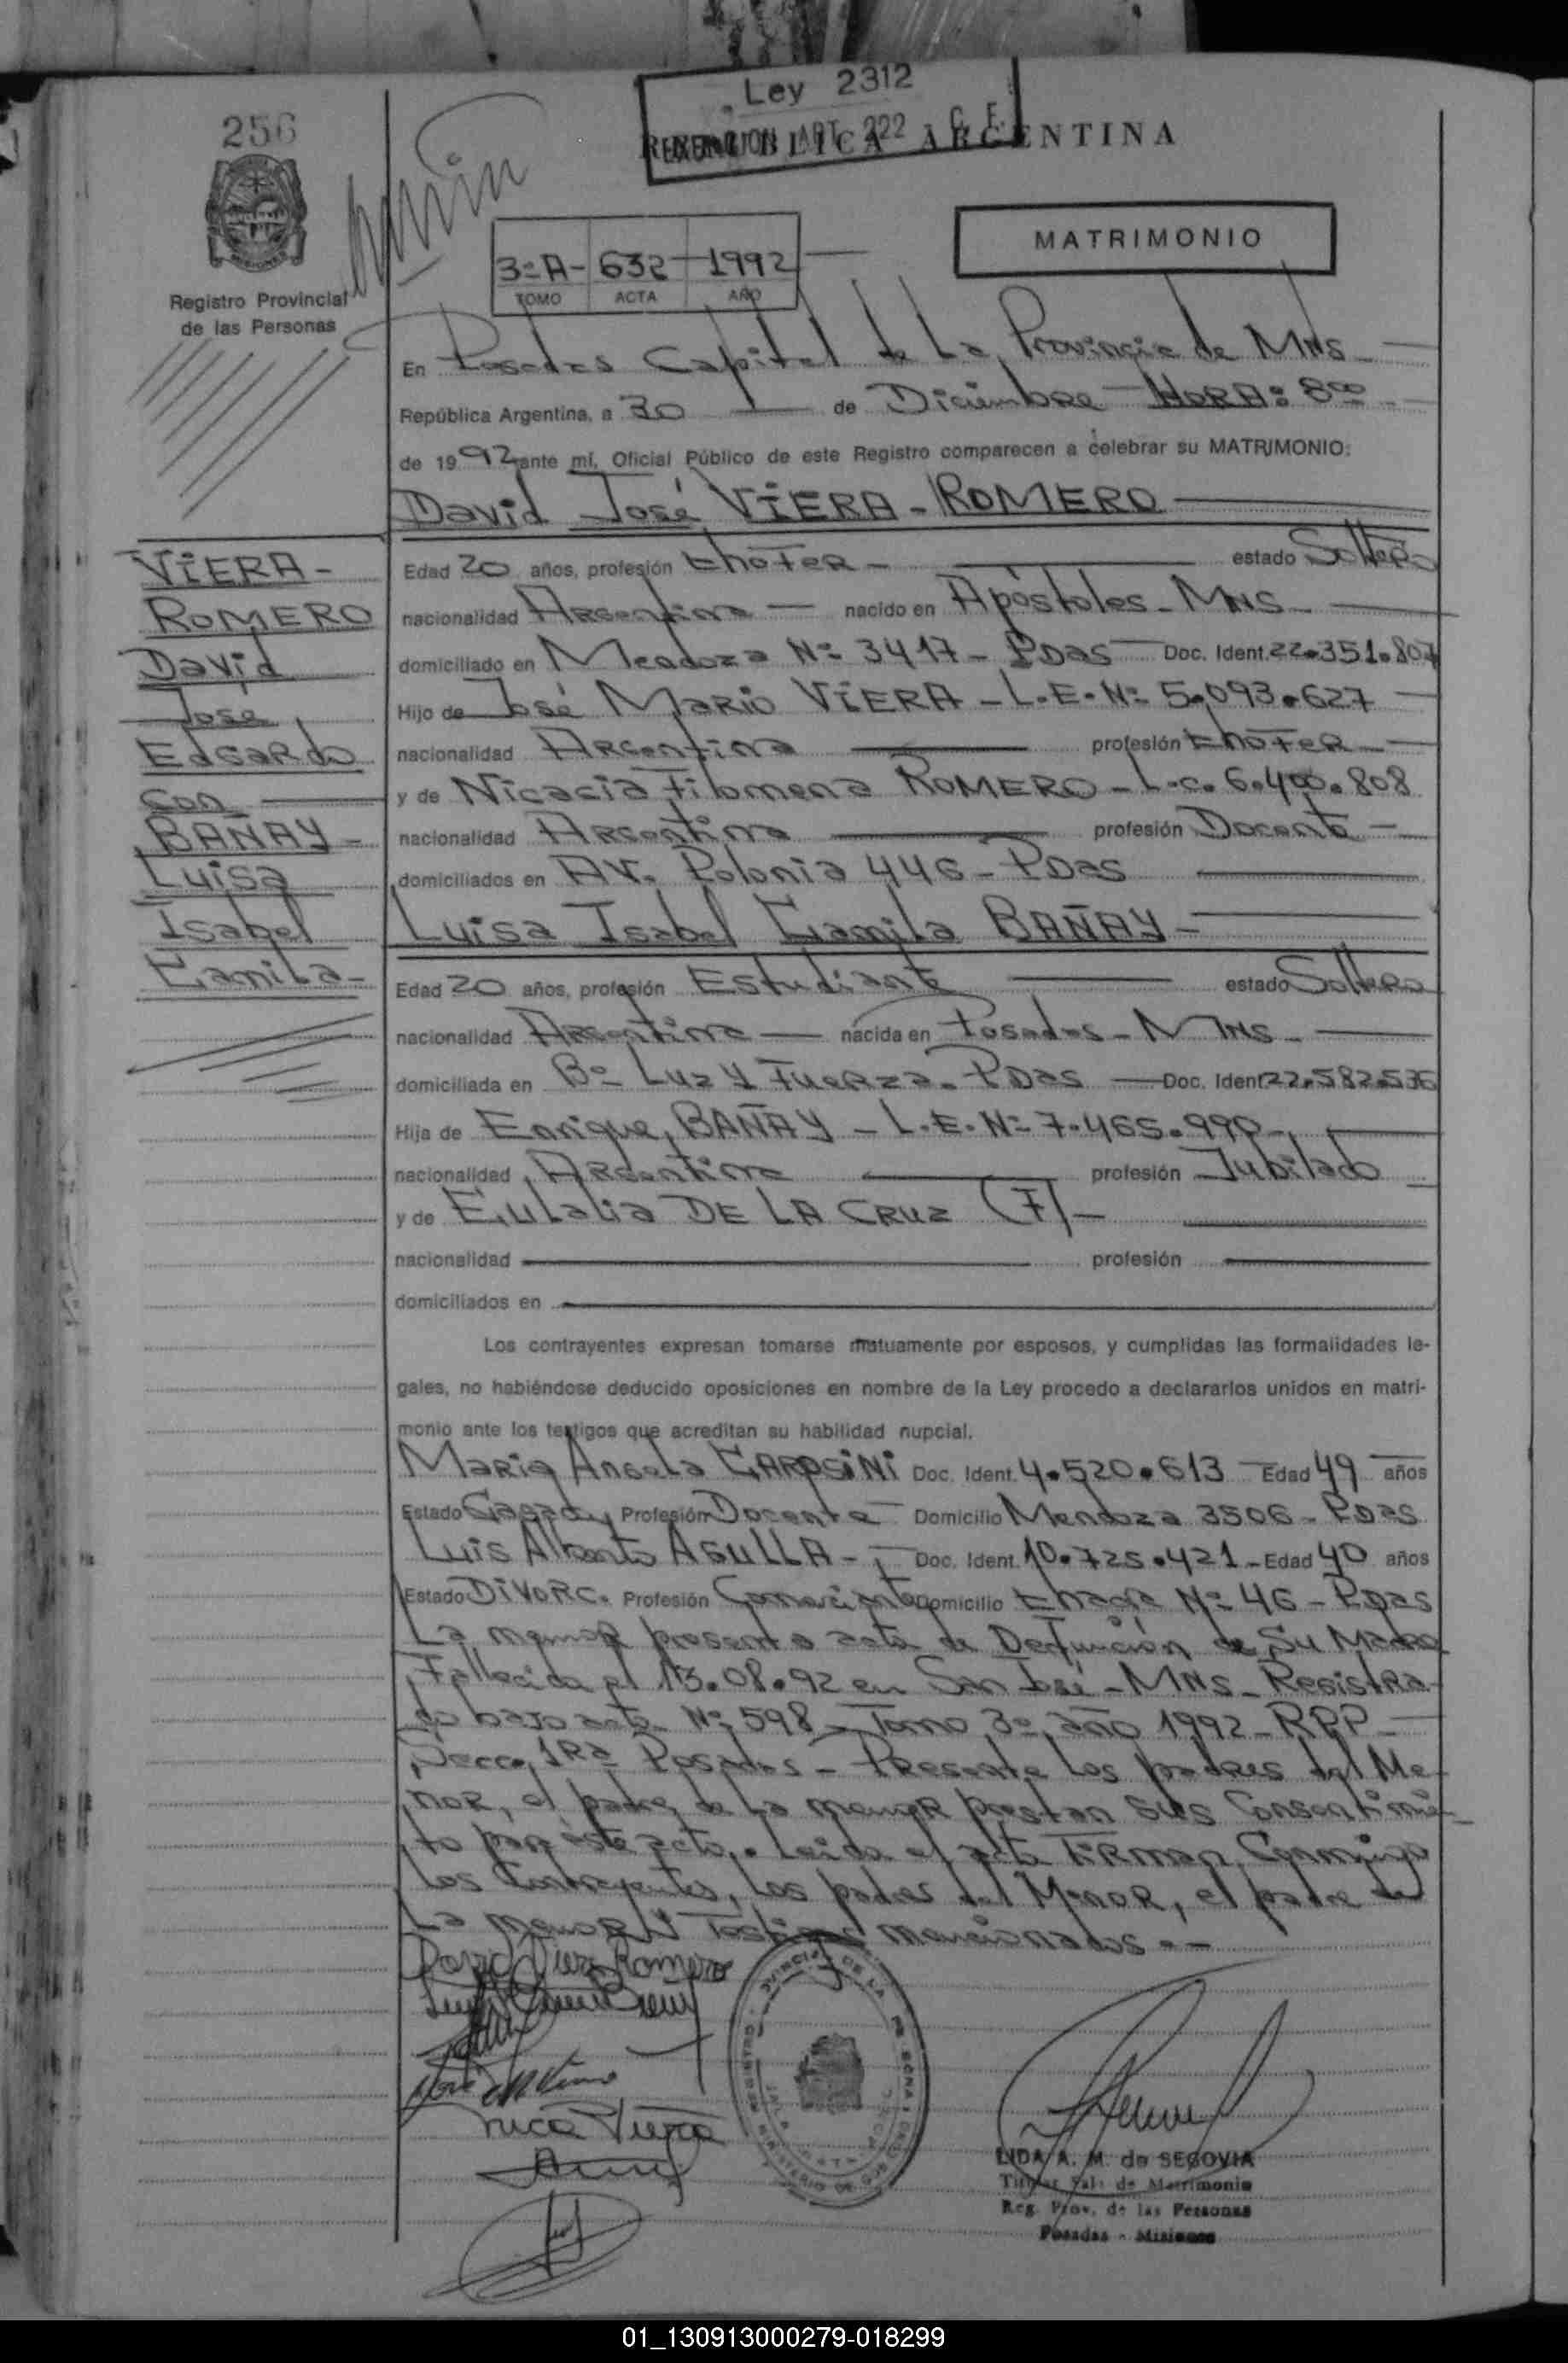 Ley 2312
ART. 222 C. F.
REPUBLICA ARGENTINA
256
MISIONES
Registro Provincial
de las Personas
MATRIMONIO
3º A - 632 - 1992
TOMO ACTA AÑO
En Posadas Capital de La Provincia de MNS
República Argentina, a 30 de Diciembre HORA: 8ºº
de 1992 ante mí, Oficial Público de este Registro comparecen a celebrar su MATRIMONIO:
David José VIERA - ROMERO
VIERA -
ROMERO
David
Jose
Edgardo
Con
BAÑAY -
Luisa
Isabel
Camila -
Edad 20 años, profesión Chofer - estado Soltero
nacionalidad Argentina - nacido en Apóstoles - MNS -
domiciliado en Mendoza Nº 3417 - PDas Doc. Ident. 22.351.807
Hijo de José Mario VIERA - L.E. Nº 5.093.627
nacionalidad Argentina profesión Chofer -
y de Nicacia Filomena ROMERO - L.C. 6.400.808
nacionalidad Argentina profesión Docente -
domiciliados en AV. Polonia 446 - PDas
Luisa Isabel Camila BAÑAY -
Edad 20 años, profesión Estudiante estado Soltera
nacionalidad Argentina - nacida en Posadas - MNS -
domiciliada en Bº Luz y Fuerza - PDas Doc. Ident. 22.582.536
Hija de Enrique BAÑAY - L.E. Nº 7.465.990 -
nacionalidad Argentina profesión Jubilado
y de Eulalia DE LA CRUZ (F) -
nacionalidad profesión
domiciliados en
Los contrayentes expresan tomarse mutuamente por esposos, y cumplidas las formalidades le-
gales, no habiéndose deducido oposiciones en nombre de la Ley procedo a declararlos unidos en matri-
monio ante los testigos que acreditan su habilidad nupcial.
Maria Angela Doc. Ident. 4.520.613 Edad 49 años
Estado Casada Profesión Docente - Domicilio Mendoza 3506 - PDas
Luis Alberto AGULLA - Doc. Ident. 10.725.421 - Edad 40 años
Estado DIVORC. Profesión Comerciante Domicilio Nº 46 - PDas
La menor presenta acta de Defunción de Su Madre
Fallecida el 13.08.92 en San José - MNS - Registra
do bajo acta Nº 598 - Tomo 3º año 1992 - RPP -
Secc. 1Ra Posadas - Presente los padres del Me-
nor, el padre de La menor prestan sus Consentimien
to para éste acto. Leida el acta Firman Conmigo
los Contrayentes, los padres del Menor, el padre de
La menor y Testigos mencionados . -
David Viera Romero
LIDA A. M. de SEGOVIA
Titular Sala de Matrimonio
Reg. Prov. de las Personas
Posadas - Misiones
01_130913000279-018299